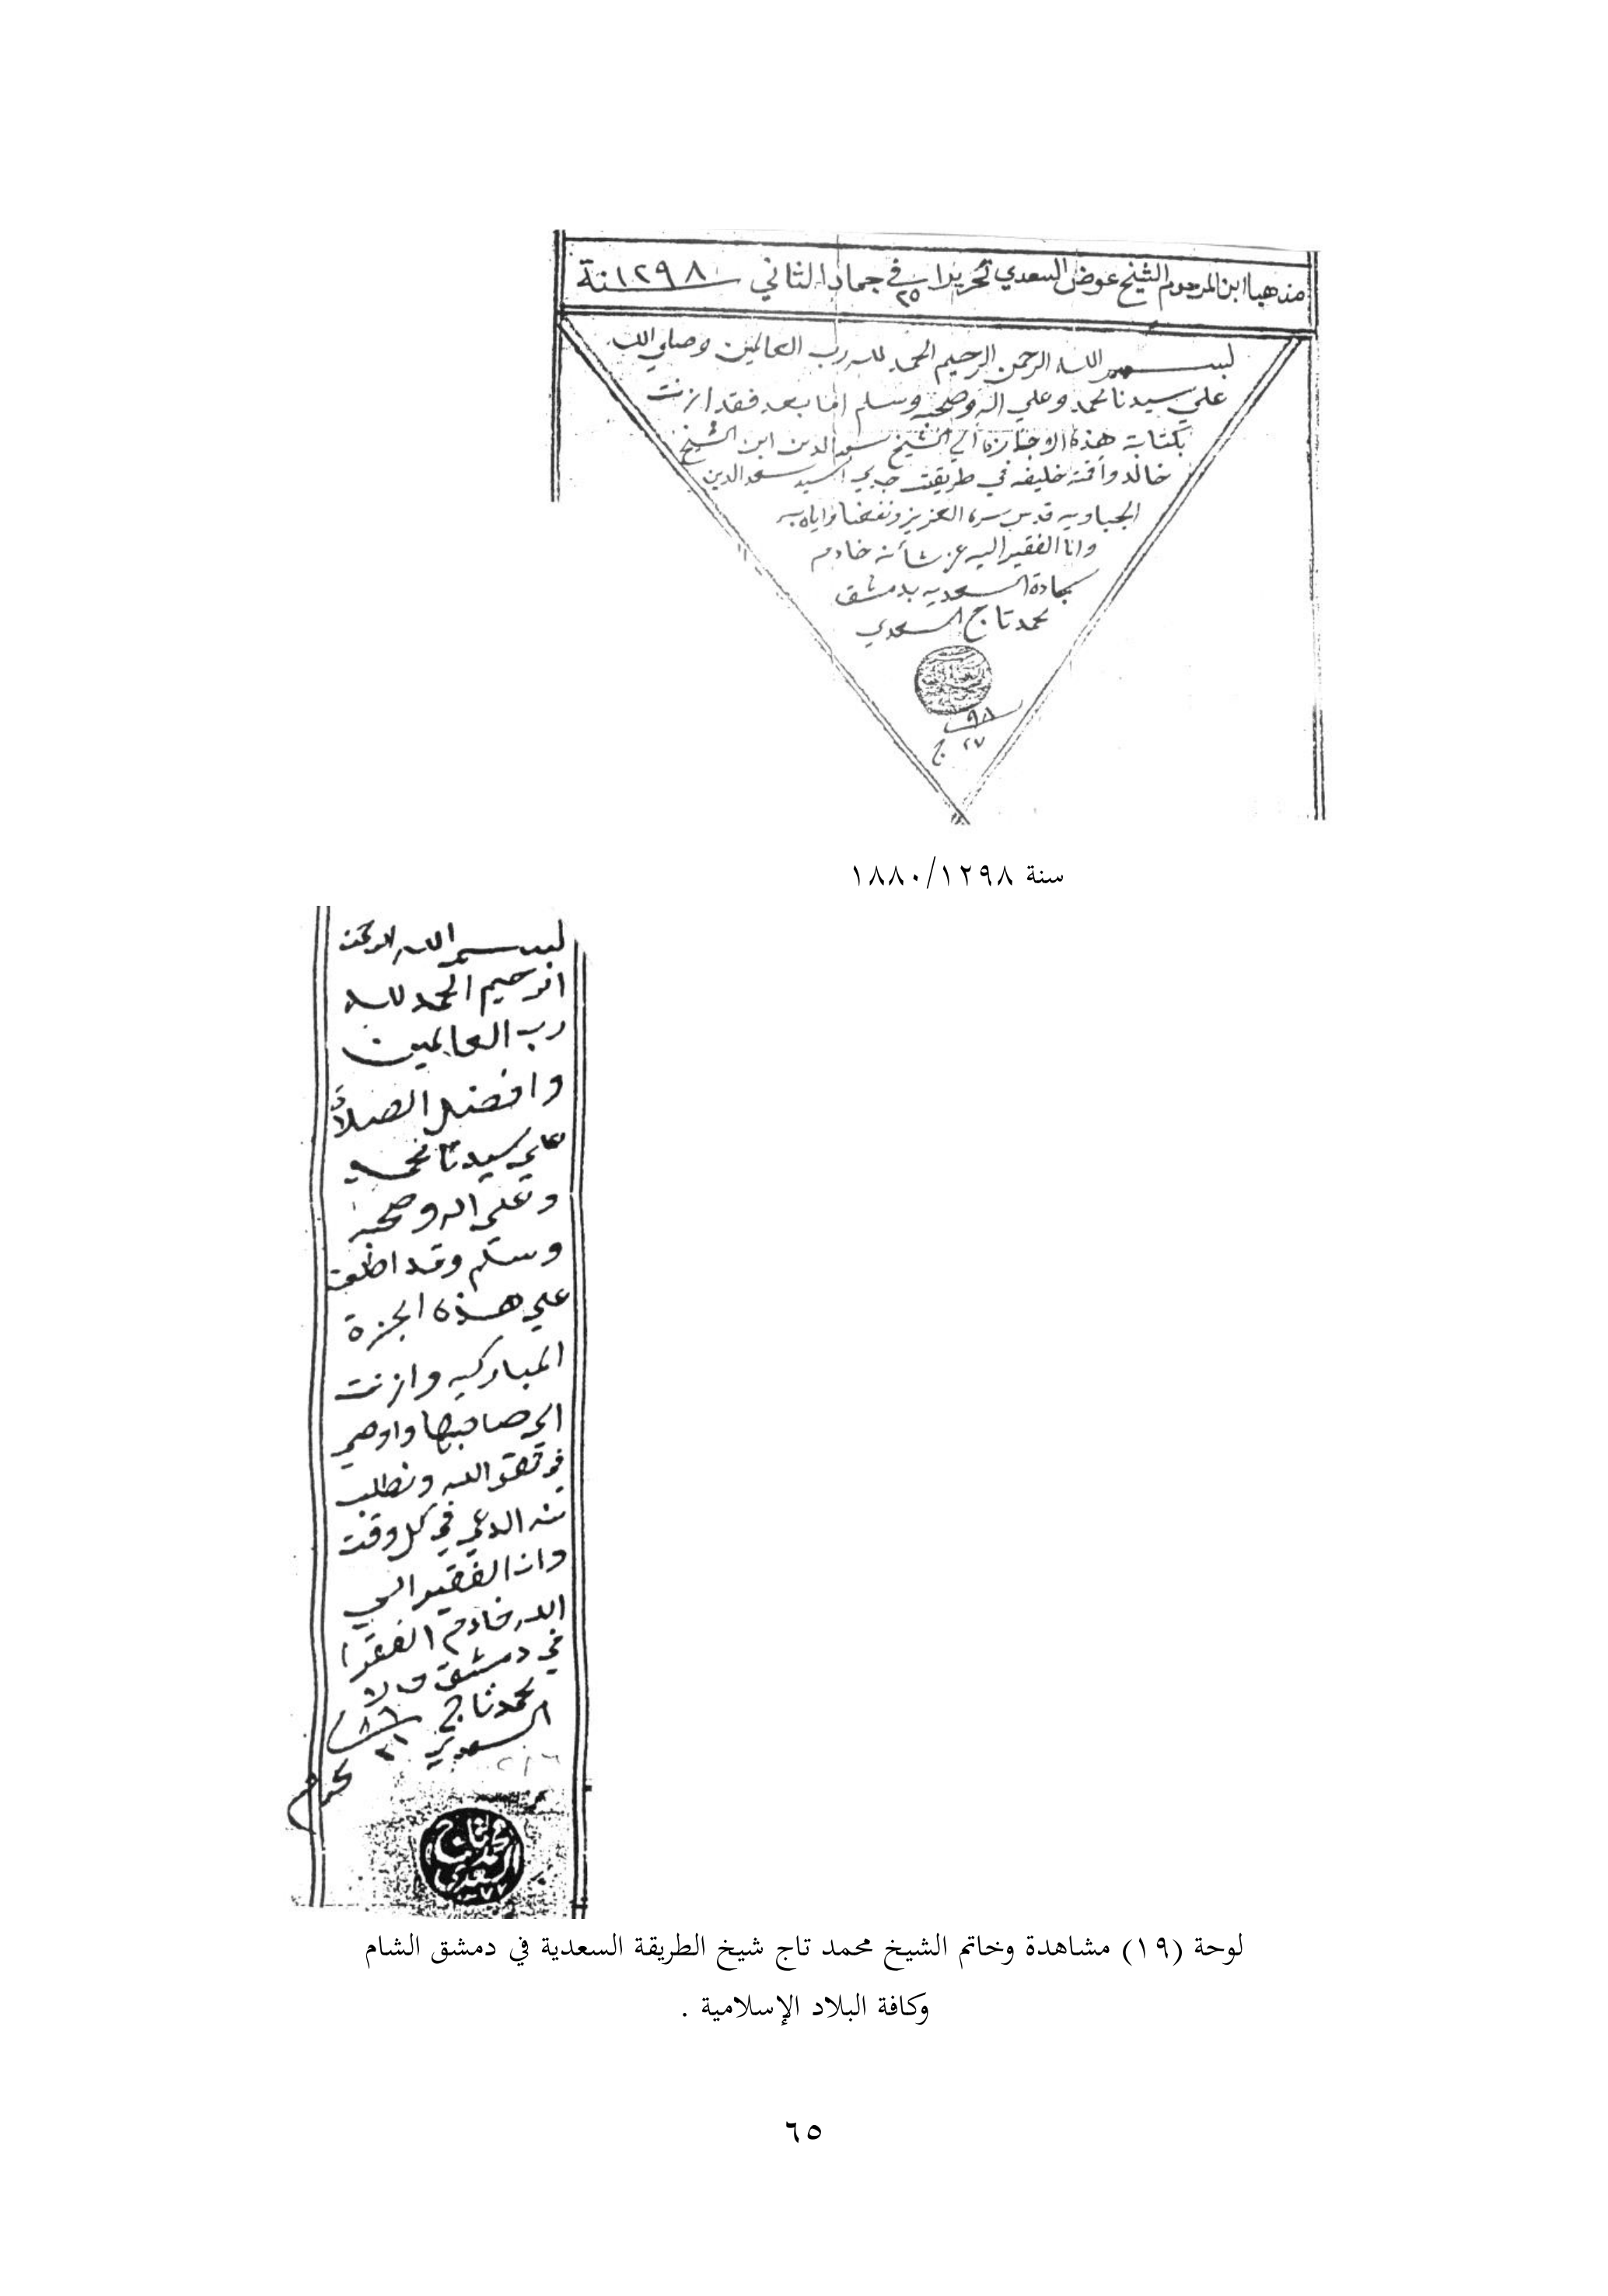 مذهبا ابن المرحوم الشيخ عوض السعدي تحريرا في ٢٥ جماد الثاني سنة ١٢٩٨
بسم الله الرحمن الرحيم الحمد لله رب العالمين وصلي الله
علي سيدنا محمد وعلي اله وصحبه وسلم اما بعد فقد ازنت
بكتابة هذه الاجازه الي الشيخ سعد الدين ابن الشيخ
خالد واقمته خليفه في طريقت جدي السيد سعد الدين
الجباويه قدس سره العزيز ونفعنا واياه به
وانا الفقير اليه عز شأنه خادم
سجادة السعديه بدمشق
محمد تاج السعدي
٩٨
٢٧ ج
سنة ١٢٩٨/١٨٨٠
بسم الله الرحمن
الرحيم الحمد لله
رب العالمين
وافضل الصلاة
علي سيدنا محمد
وعلي اله وصحبه
وسلم وقد اطلعت
علي هذه الجزة
المباركيه وازنت
الي صاحبها
الله ونطلب
منه الدعي في كل وقت
وانا الفقير الي
الله خادم الفقرا
في دمشق
محمد تاج
السعدي
٨٦
٢١
محرم
محمد تاج
السعدي
لوحة (١٩) مشاهدة وخاتم الشيخ محمد تاج شيخ الطريقة السعدية في دمشق الشام
وكافة البلاد الإسلامية .
٦٥